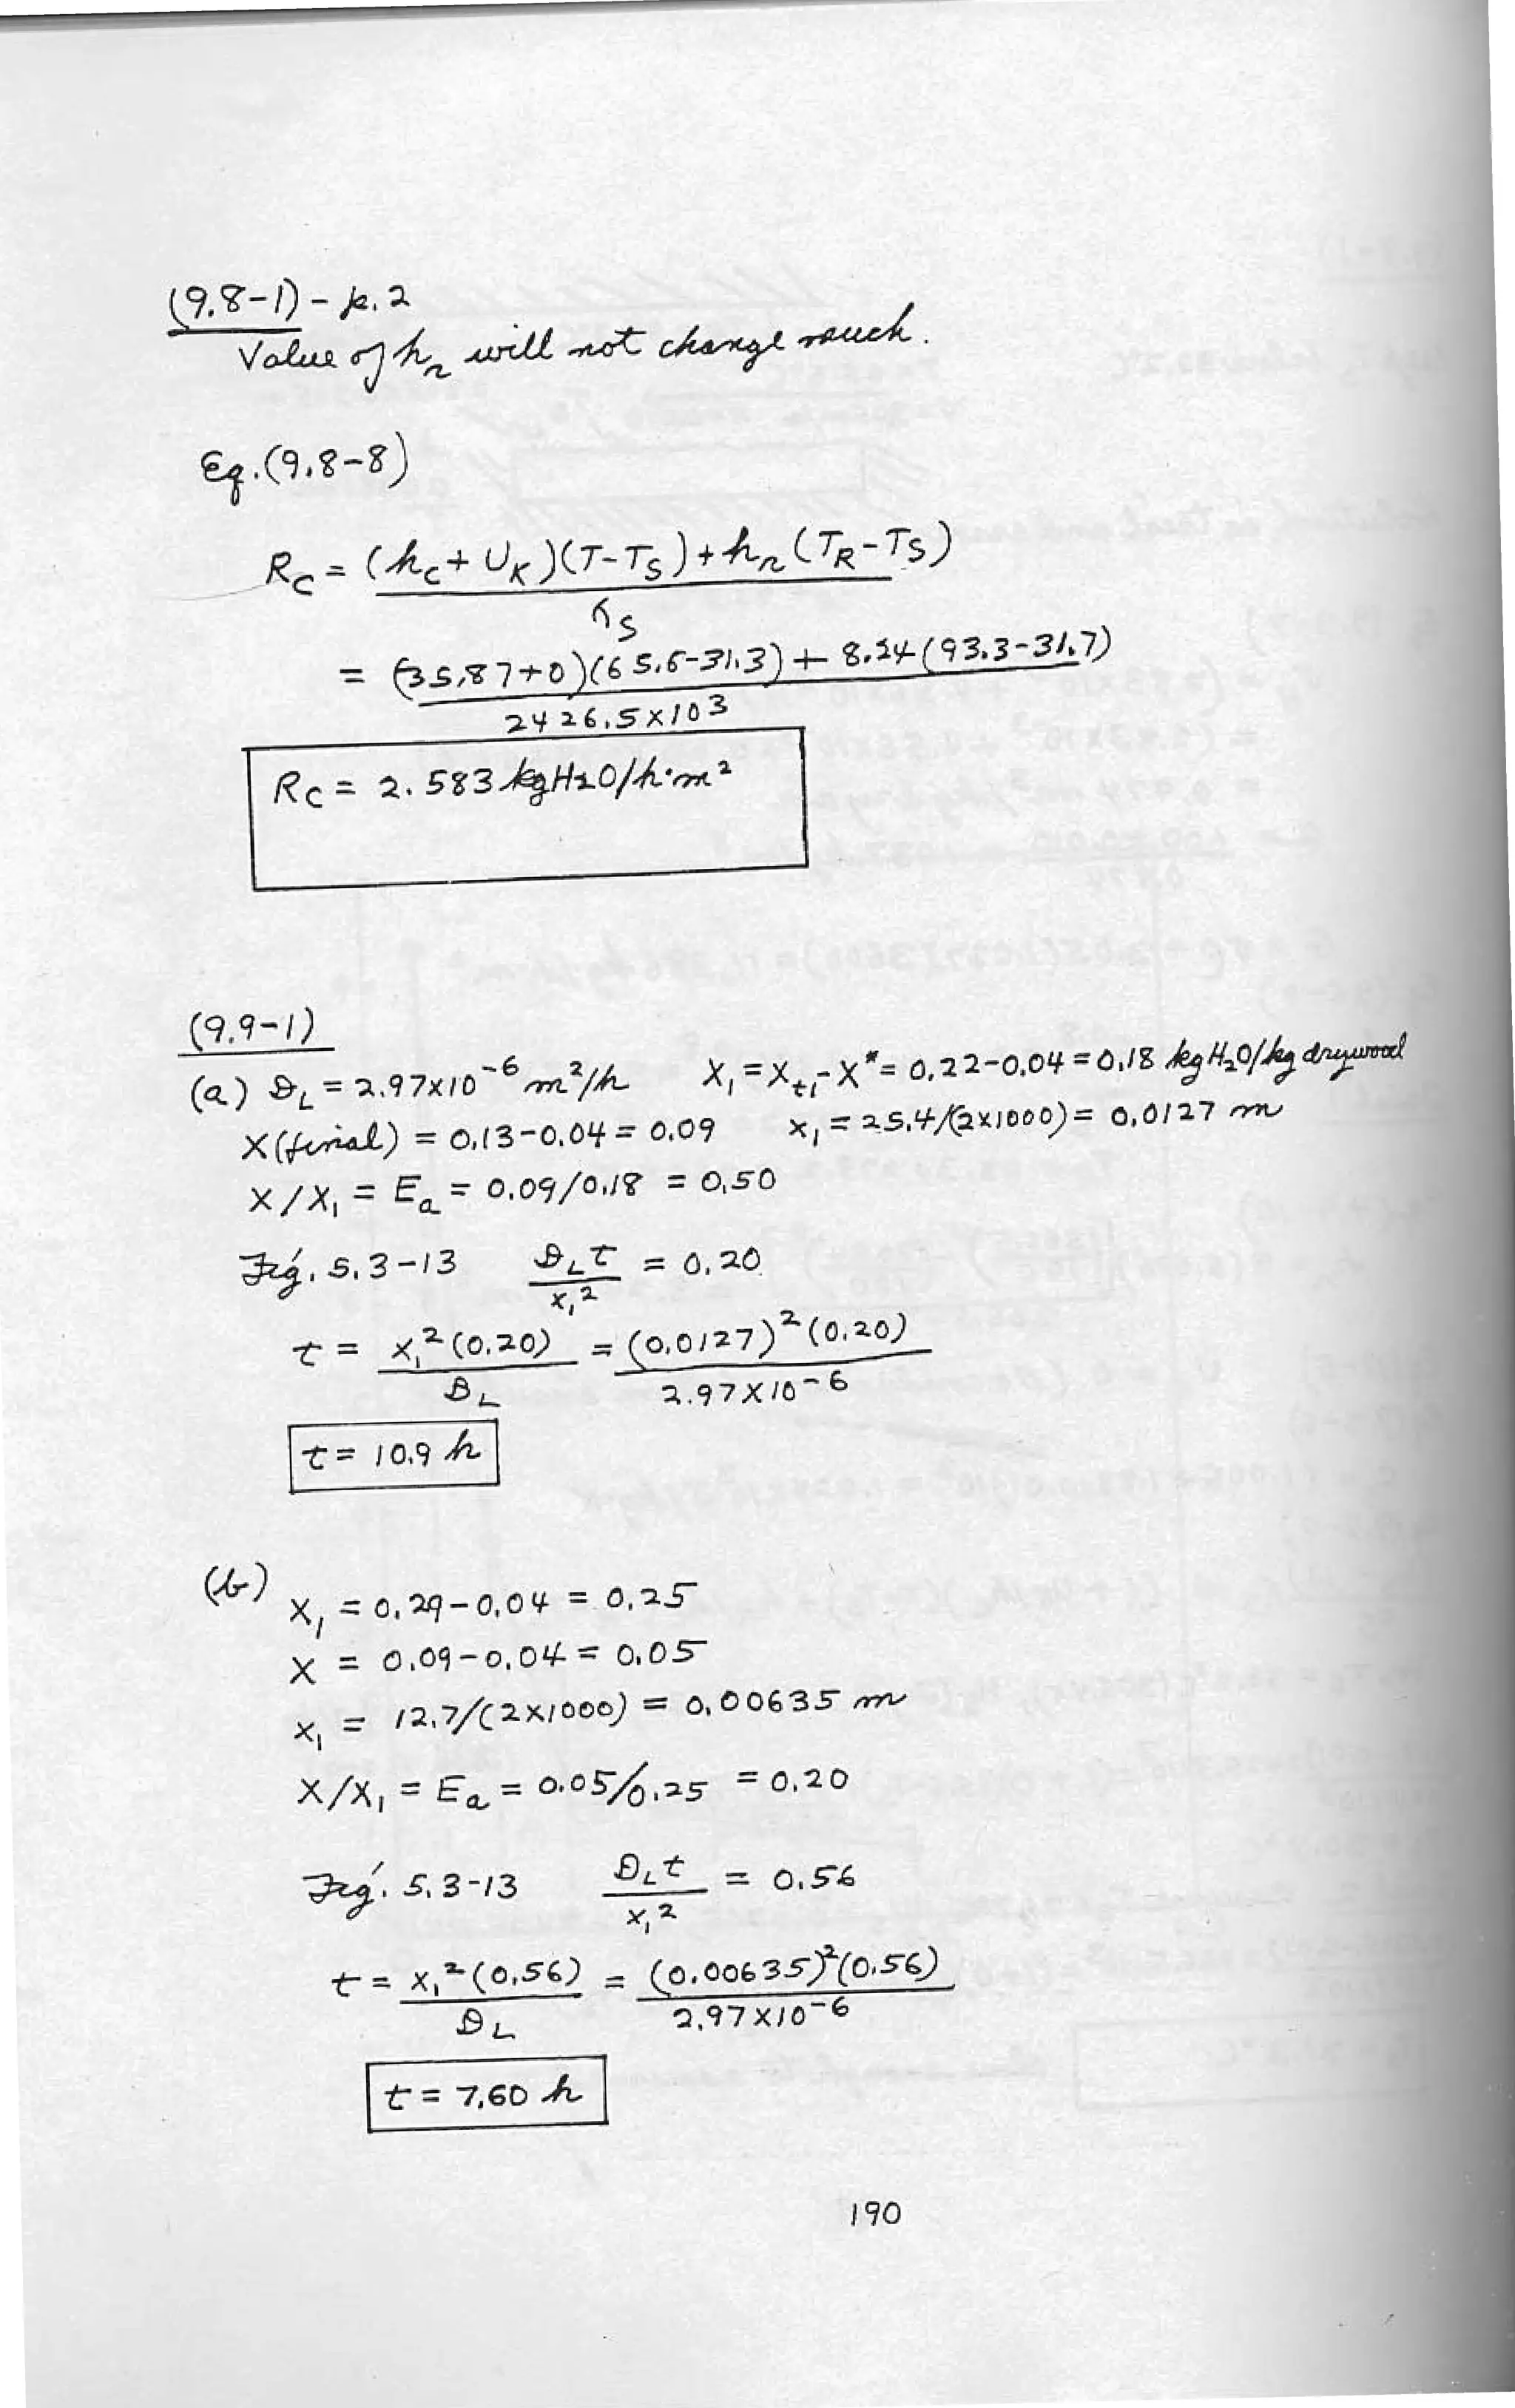 (9.8-1) - p. 2
Value of h_r will not change much.
Eq. (9.8-8)
R_C = (h_C + U_K)(T - T_S) + h_r (T_R - T_S)
λ_S
= (35.87+0)(65.6-31.3) + 8.24(93.3-31.7)
2426.5×10³
R_C = 2.583 kg H₂O/h·m²
(9.9-1)
(a) D_L = 2.97×10⁻⁶ m²/h X₁ = X_t₁ - X* = 0.22-0.04 = 0.18 kg H₂O/kg dry wood
X(final) = 0.13-0.04 = 0.09 x₁ = 25.4/(2×1000) = 0.0127 m
X/X₁ = E_a = 0.09/0.18 = 0.50
Fig. 5.3-13 D_L t = 0.20
x₁²
t = x₁²(0.20) = (0.0127)²(0.20)
D_L 2.97×10⁻⁶
t = 10.9 h
(b)
X₁ = 0.29-0.04 = 0.25
X = 0.09-0.04 = 0.05
x₁ = 12.7/(2×1000) = 0.00635 m
X/X₁ = E_a = 0.05/0.25 = 0.20
Fig. 5.3-13 D_L t = 0.56
x₁²
t = x₁²(0.56) = (0.00635)²(0.56)
D_L 2.97×10⁻⁶
t = 7.60 h
190